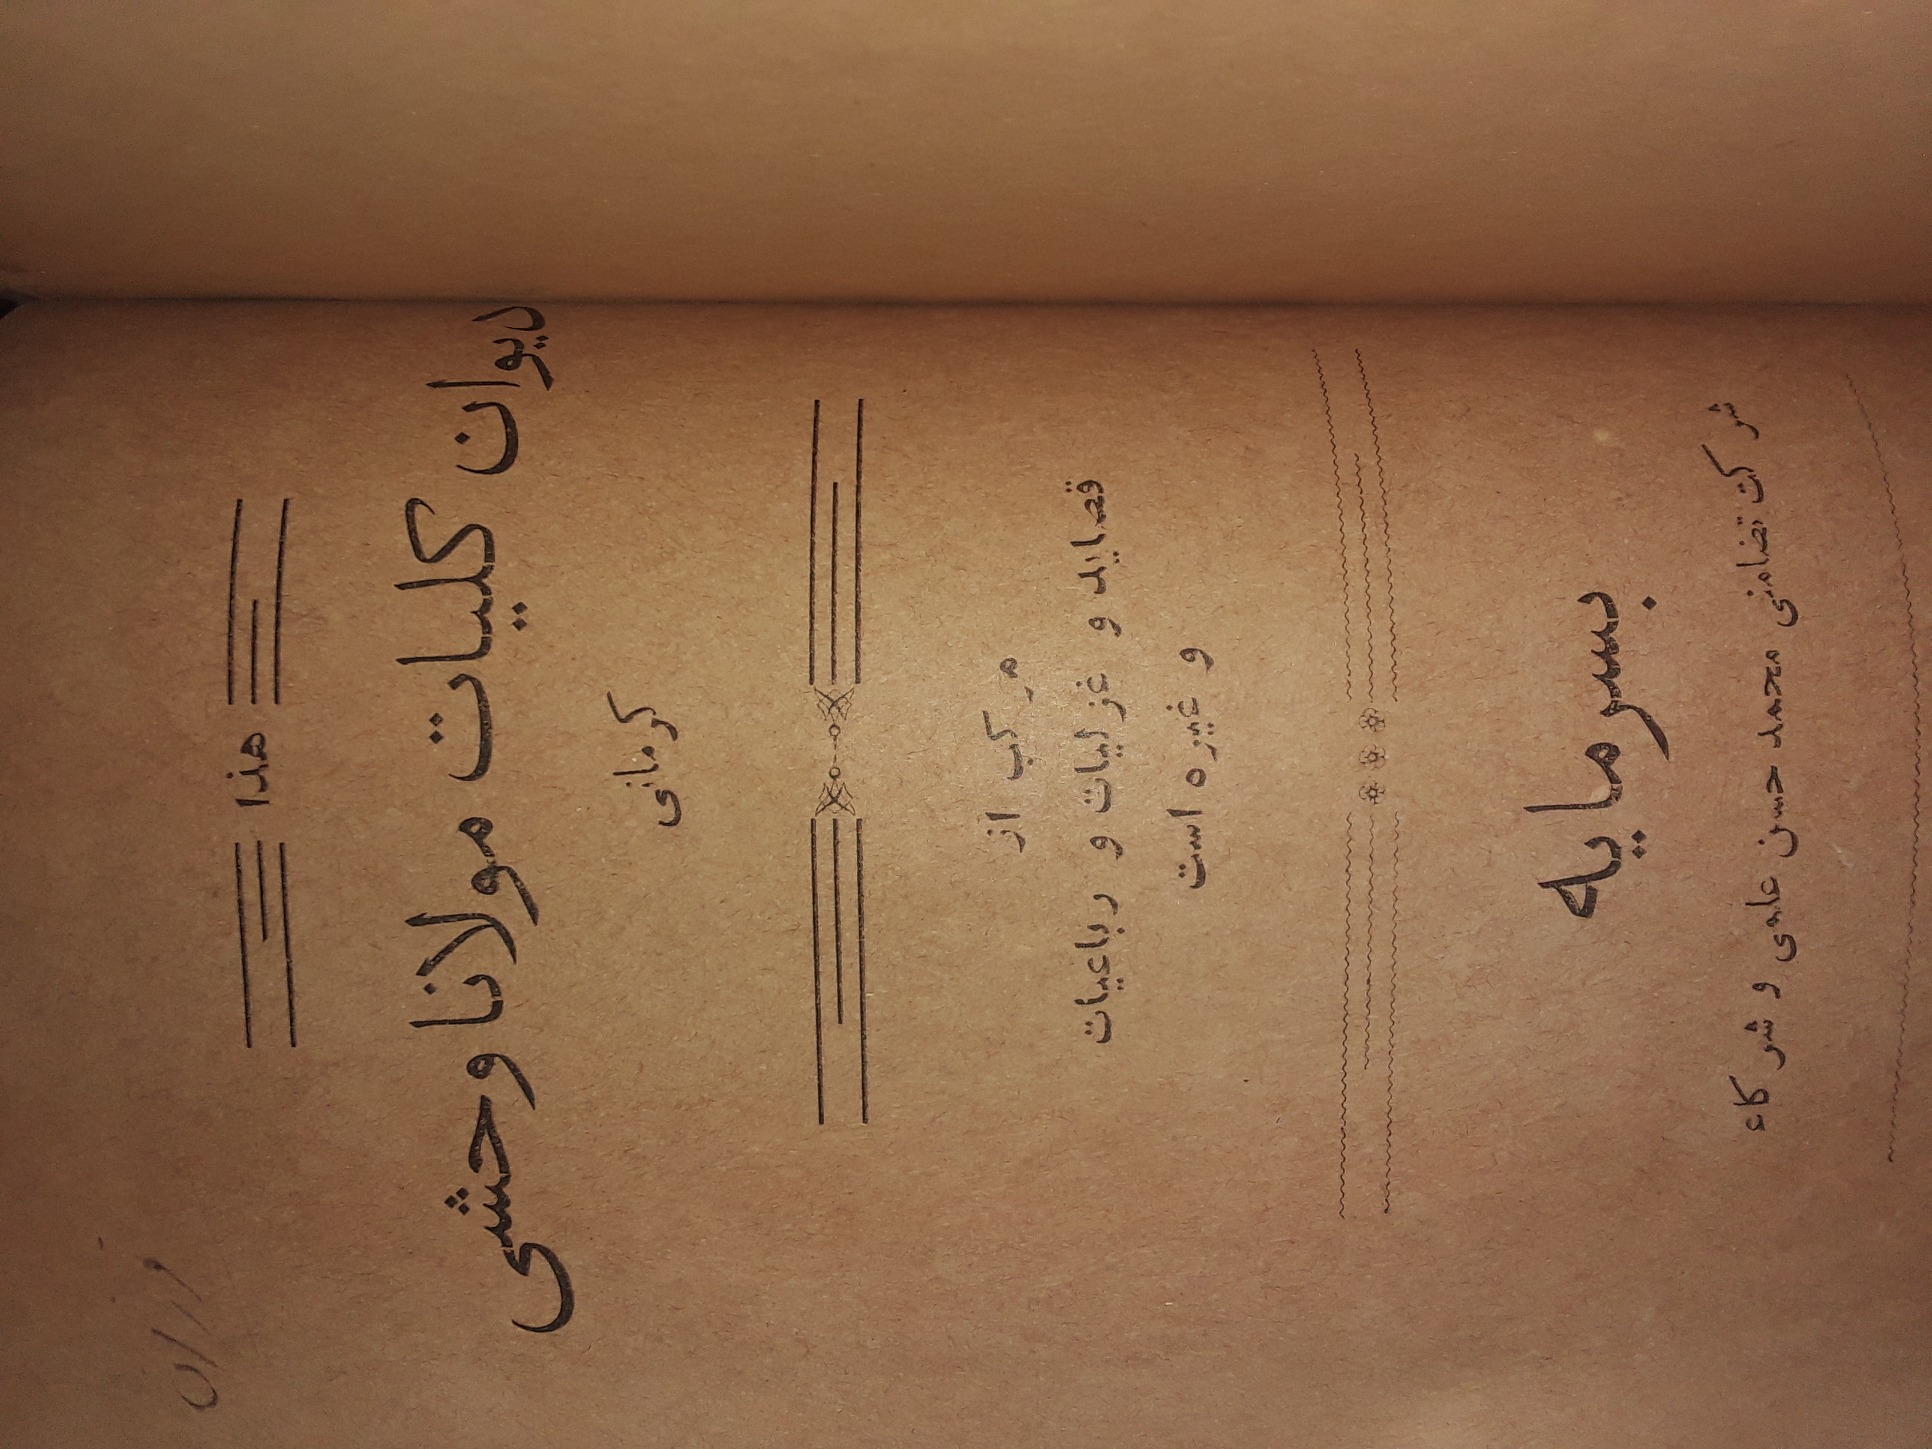 هذا
دیوان کلیات مولانا وحشی
کرمانی
مرکب از
قصاید و غزلیات و رباعیات
و غیره است
بسرمایه
شرکت تضامنی محمد حسن علمی و شرکاء